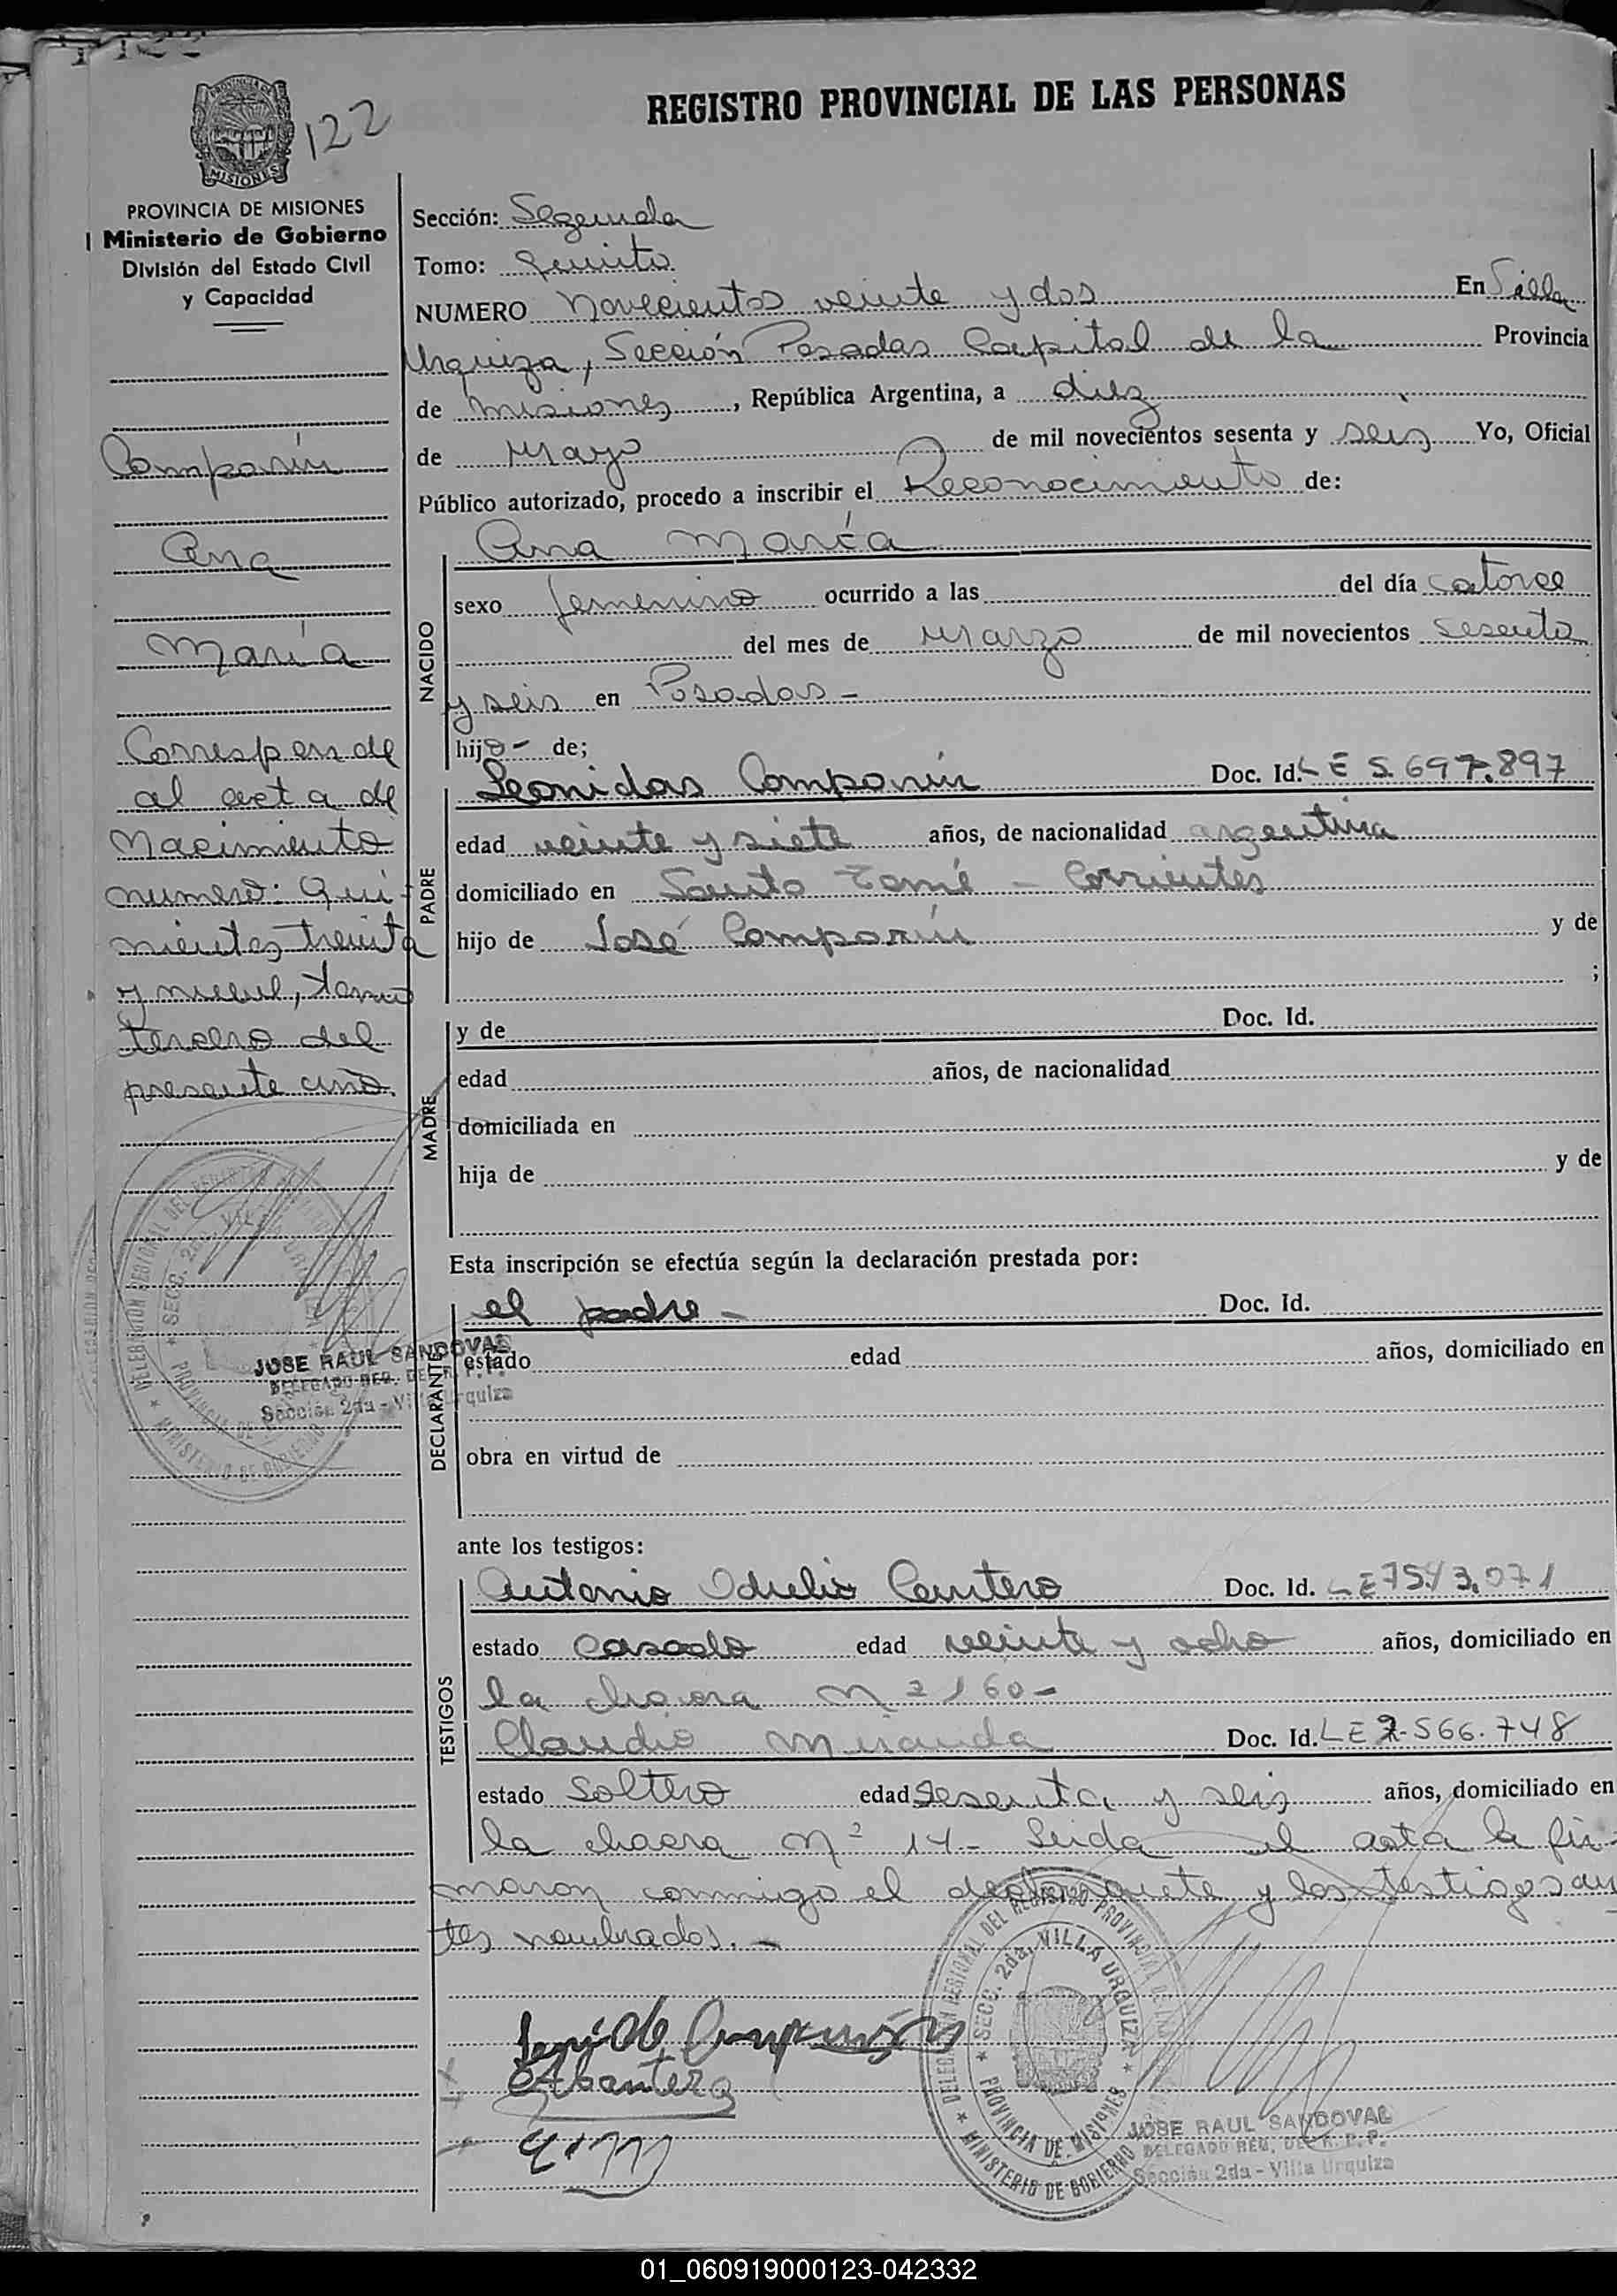 122
REGISTRO PROVINCIAL DE LAS PERSONAS
MISIONES
PROVINCIA DE MISIONES
Ministerio de Gobierno
División del Estado Civil
y Capacidad
Comparín
Ana
María
Corresponde
al acta de
Nacimiento
numero: Qui-
nientos treinta
y nueve, tomo
tercero del
presente año.
JOSE RAUL SANDOVAL
DELEGADO REG. DEL R. P. P.
Sección 2da - Villa Urquiza
Sección: Segunda
Tomo: Quinto
NUMERO Novecientos veinte y dos En Villa
Urquiza, Sección Posadas Capital de la Provincia
de Misiones, República Argentina, a diez
de Mayo de mil novecientos sesenta y seis Yo, Oficial
Público autorizado, procedo a inscribir el Reconocimiento de:
NACIDO
Ana María
sexo femenino ocurrido a las del día catorce
del mes de Marzo de mil novecientos sesenta
y seis en Posadas -
hijo - de;
PADRE
Leonidas Comparín Doc. Id. LE 5.697.897
edad veinte y siete años, de nacionalidad argentina
domiciliado en Santo Tomé - Corrientes
hijo de José Comparín y de
;
MADRE
y de Doc. Id.
edad años, de nacionalidad
domiciliada en
hija de y de
Esta inscripción se efectúa según la declaración prestada por:
DECLARANTE
el padre - Doc. Id.
estado edad años, domiciliado en
obra en virtud de
ante los testigos:
TESTIGOS
Antonio Odulio Cantero Doc. Id. LE 7513.071
estado casado edad veinte y ocho años, domiciliado en
la chacra nº 160 -
Claudio Miranda Doc. Id. LE 2.566.748
estado Soltero edad Sesenta y seis años, domiciliado en
la chacra Nº 14 - Leida el acta la fir-
maron conmigo el declarante y los testigos an
tes nombrados. -
DELEGACION REGIONAL DEL REGISTRO PROVINCIAL DE LAS
SECC. 2da. VILLA URQUIZA
PROVINCIA DE MISIONES
MINISTERIO DE GOBIERNO
JOSE RAUL SANDOVAL
DELEGADO REG. DEL R. P. P.
Sección 2da - Villa Urquiza
01_060919000123-042332